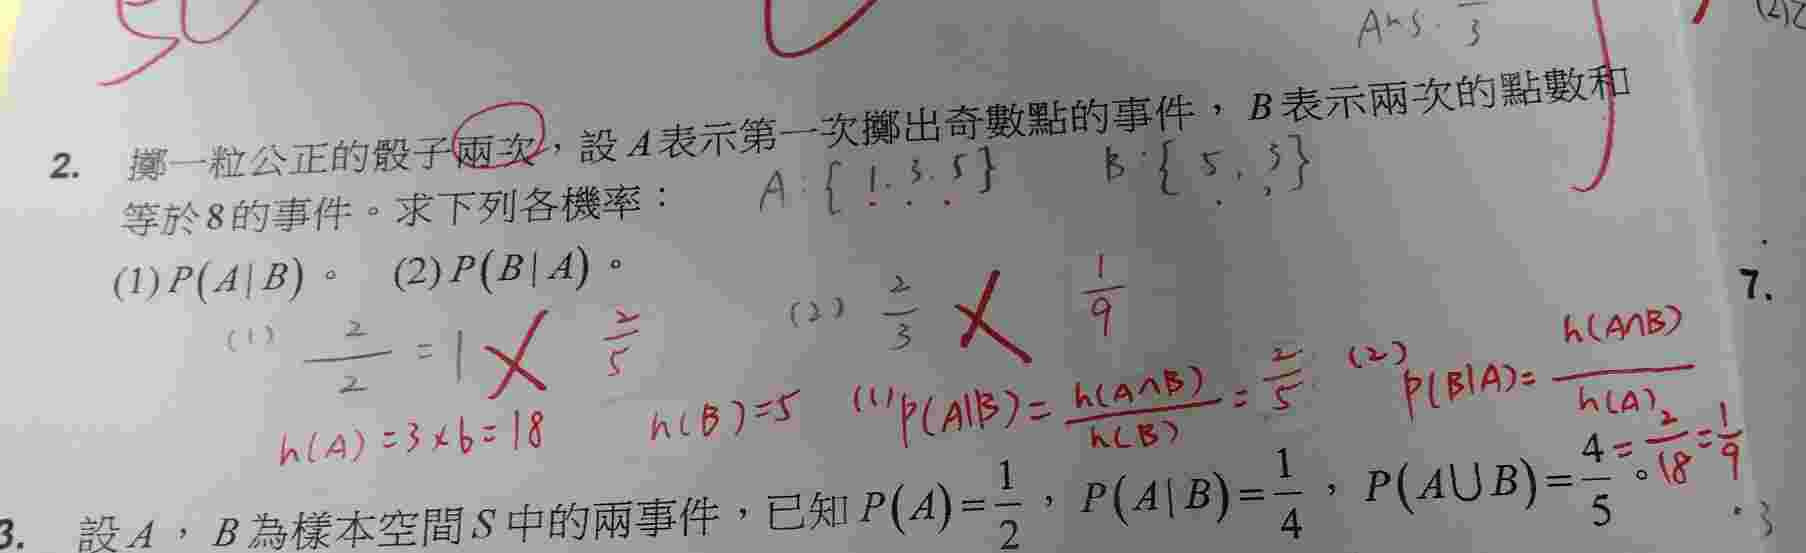 Ans. 3
2. 擲一粒公正的骰子兩次，設 A 表示第一次擲出奇數點的事件，B 表示兩次的點數和
A:{1.3.5} B:{5,3}
等於8的事件。求下列各機率：
(1) P(A|B)。 (2) P(B|A)。
(1) 2/2 = 1 ✗ 2/5 (2) 2/3 ✗ 1/9
n(A)=3×6=18 n(B)=5 (1) P(A|B)= n(A∩B)/n(B) = 2/5 (2) P(B|A)= n(A∩B)/n(A) = 2/18 = 1/9
7.
3. 設 A，B 為樣本空間 S 中的兩事件，已知 P(A)=1/2，P(A|B)=1/4，P(A∪B)=4/5。